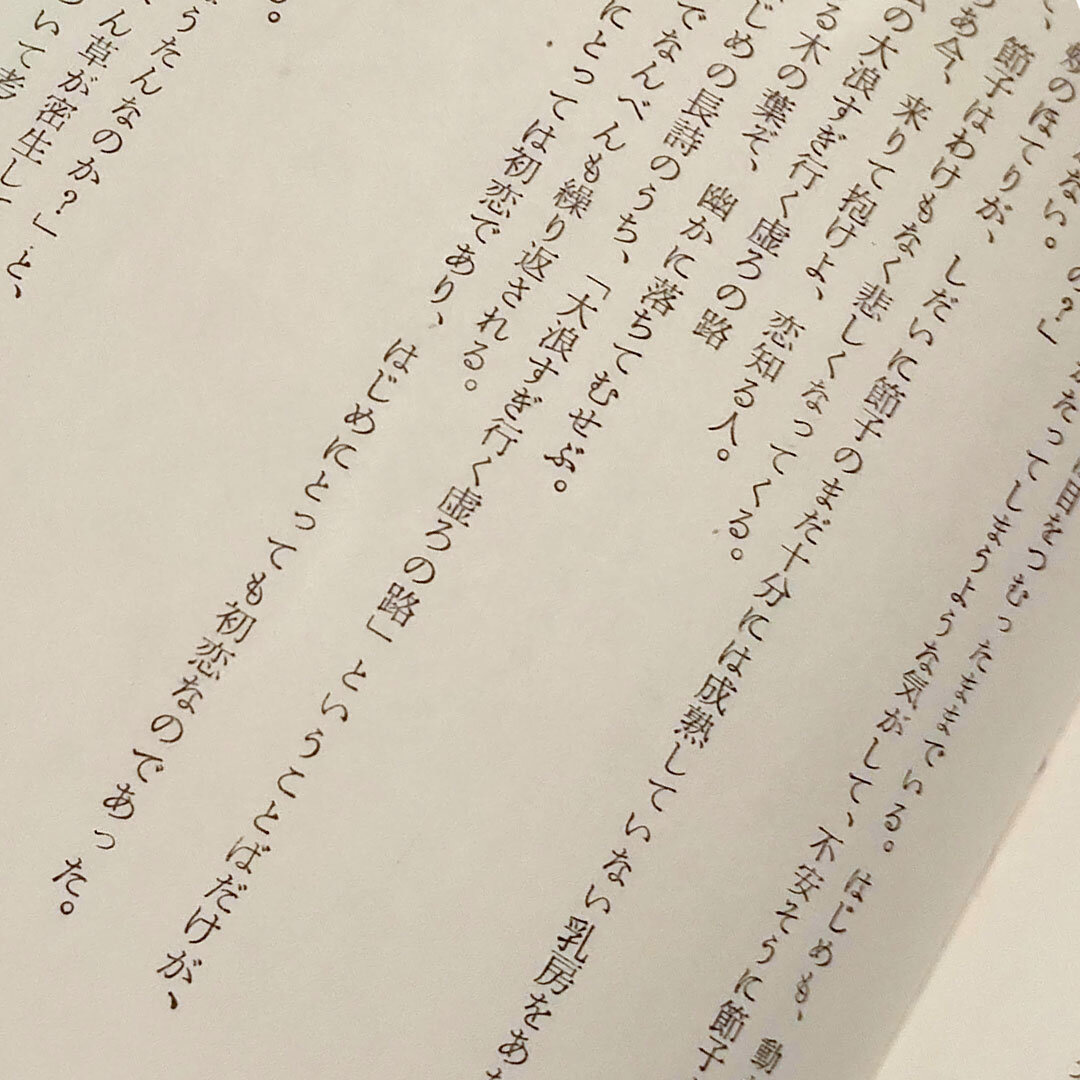 目をつむったままでいる。はじめも、動
たってしまうような気がして、不安そうに節子
のほてりが、しだいに節子のまだ十分には成熟していない乳房をあ
節子はわけもなく悲しくなってくる。
あ今、来りて抱けよ、恋知る人。
の大浪すぎ行く虚ろの路
る木の葉ぞ、幽かに落ちてむせぶ。
じめの長詩のうち、「大浪すぎ行く虚ろの路」ということばだけが、
でなんべんも繰り返される。
にとっては初恋であり、はじめにとっても初恋なのであった。
。
うたんなのか?」と、
ん草が密生し
いて考